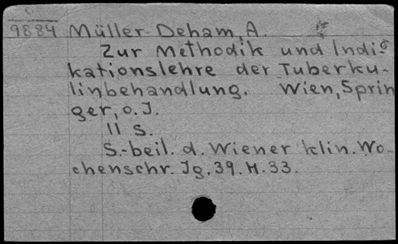 9884 Müller-Deham, A.
Zur Methodik und Indi-
kationslehre der Tuberku-
linbehandlung. Wien, Sprin
ger, o. J.
11 S.
S.-beil. d. Wiener klin. Wo-
chenschr. Jg. 39. H. 33.